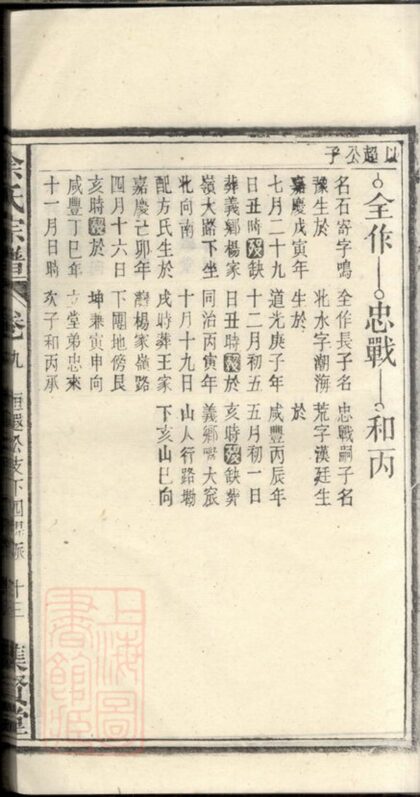 以超公子
全作—忠戰—和丙
名石寄字鳴
豫生於
嘉慶戊寅年
七月二十九
日丑時歿缺
葬義鄉楊家
嶺大路下坐
北向南
配方氏生於
嘉慶己卯年
四月十六日
亥時歿於
咸豐丁巳年
十一月日時
全作長子名
水字潮海
生於
道光庚子年
十二月初五
日丑時歿於
同治丙寅年
十月十九日
戌時葬王家
楊家嶺路
下園地傍艮
坤兼寅申向
立堂弟忠來
次子和丙承
忠戰嗣子名
荒字漢廷生
於
咸豐丙辰年
五月初一日
亥時歿缺葬
義鄉嘴大旅
山人行路坳
下亥山巳向
氏宗譜
卷九
公支下四
十三
集賢堂
上海圖書館藏